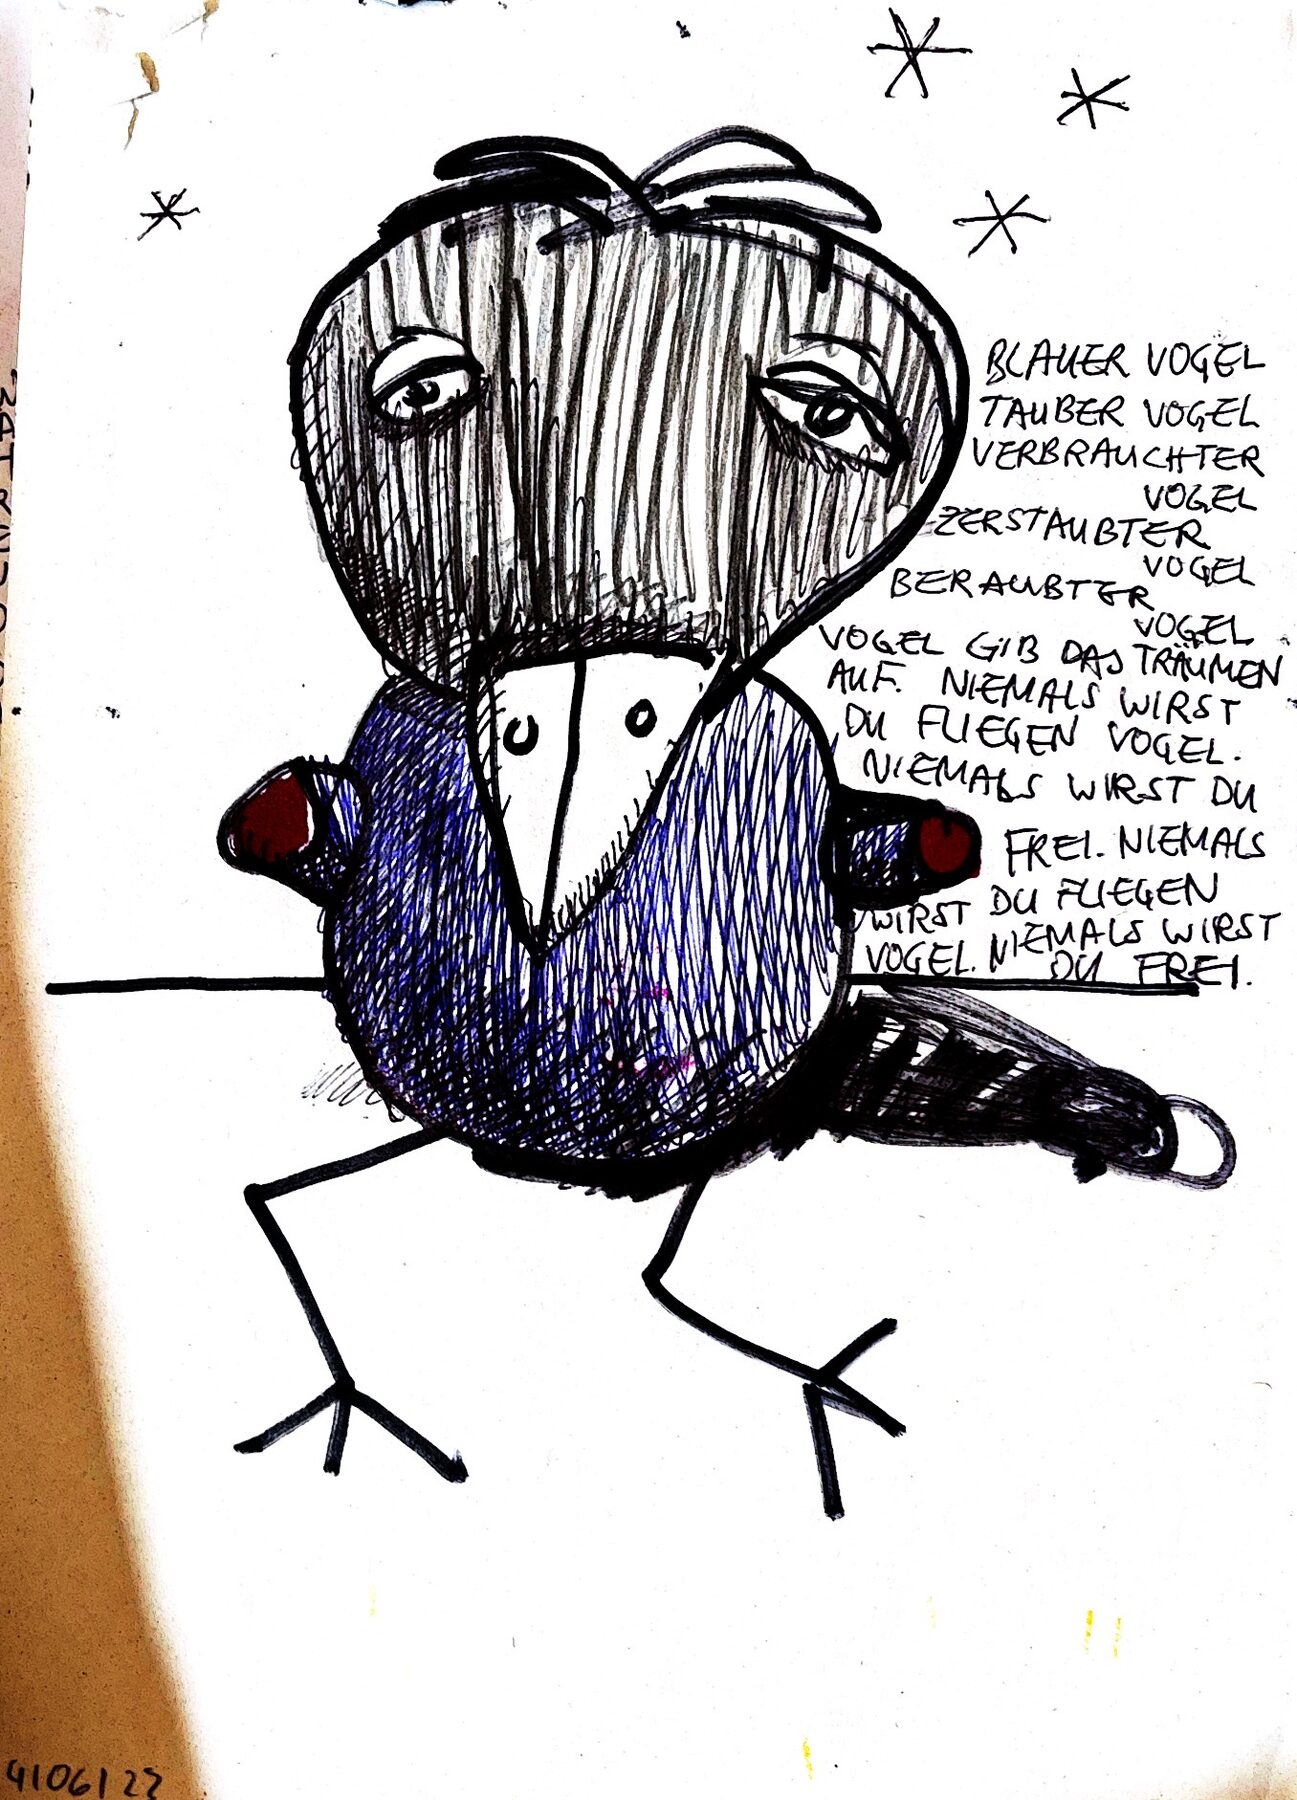 BLAUER VOGEL
TAUBER VOGEL
VERBRAUCHTER
VOGEL
ZERSTAUBTER
VOGEL
BERAUBTER
VOGEL
VOGEL GIB DAS TRÄUMEN
AUF. NIEMALS WIRST
DU FLIEGEN VOGEL.
NIEMALS WIRST DU
FREI. NIEMALS
WIRST DU FLIEGEN
VOGEL. NIEMALS WIRST
DU FREI.
4106122